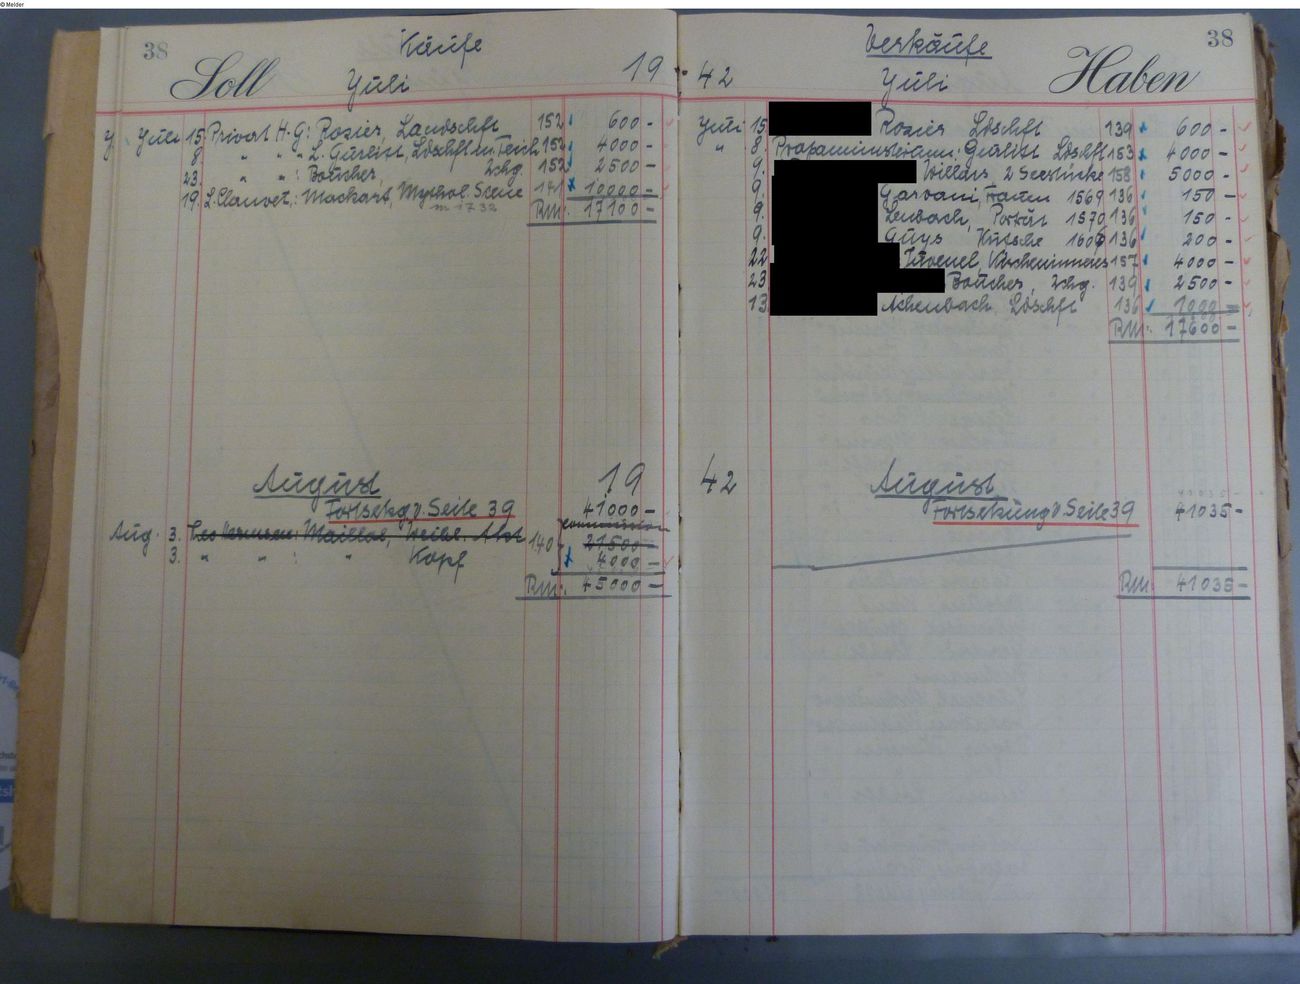 © Melder
38 Käufe
Soll Juli 19
Juli 15. Privat H.G: Rosier, Landschft 152 600 -
8 " " " L. Gurlitt, Ldschft m. Teich 152 4000 -
23. " " : Boucher, Zchg. 152 2500 -
19. Mackart, Mythol. Scene 141 10000 -
RM: 17100 -
August 19
Fortsetzg v. Seite 39 41000 -
Aug. 3. Maillol, Weibl. Akt 140 21500 -
3. " " : " Kopf 4000 -
RM: 45000 -
Verkäufe 38
42 Juli Haben
Juli 15 Rosier Ldschft 139 600 -
" 8. Propaministerium: Gurlitt Ldschft 153 4000 -
9. 2 Seestücke 158 5000 -
9. Garvani, Frauen 1569 136 150 -
9. Lenbach, Porträt 1570 136 150 -
9. Guys Kutsche 136 200 -
22 157 4000 -
23 Boucher, Zchg. 139 2500 -
13 Achenbach, Ldschft 136 1000 -
RM: 17600 -
42 August
Fortsetzung v Seite 39 41035 -
RM: 41035 -